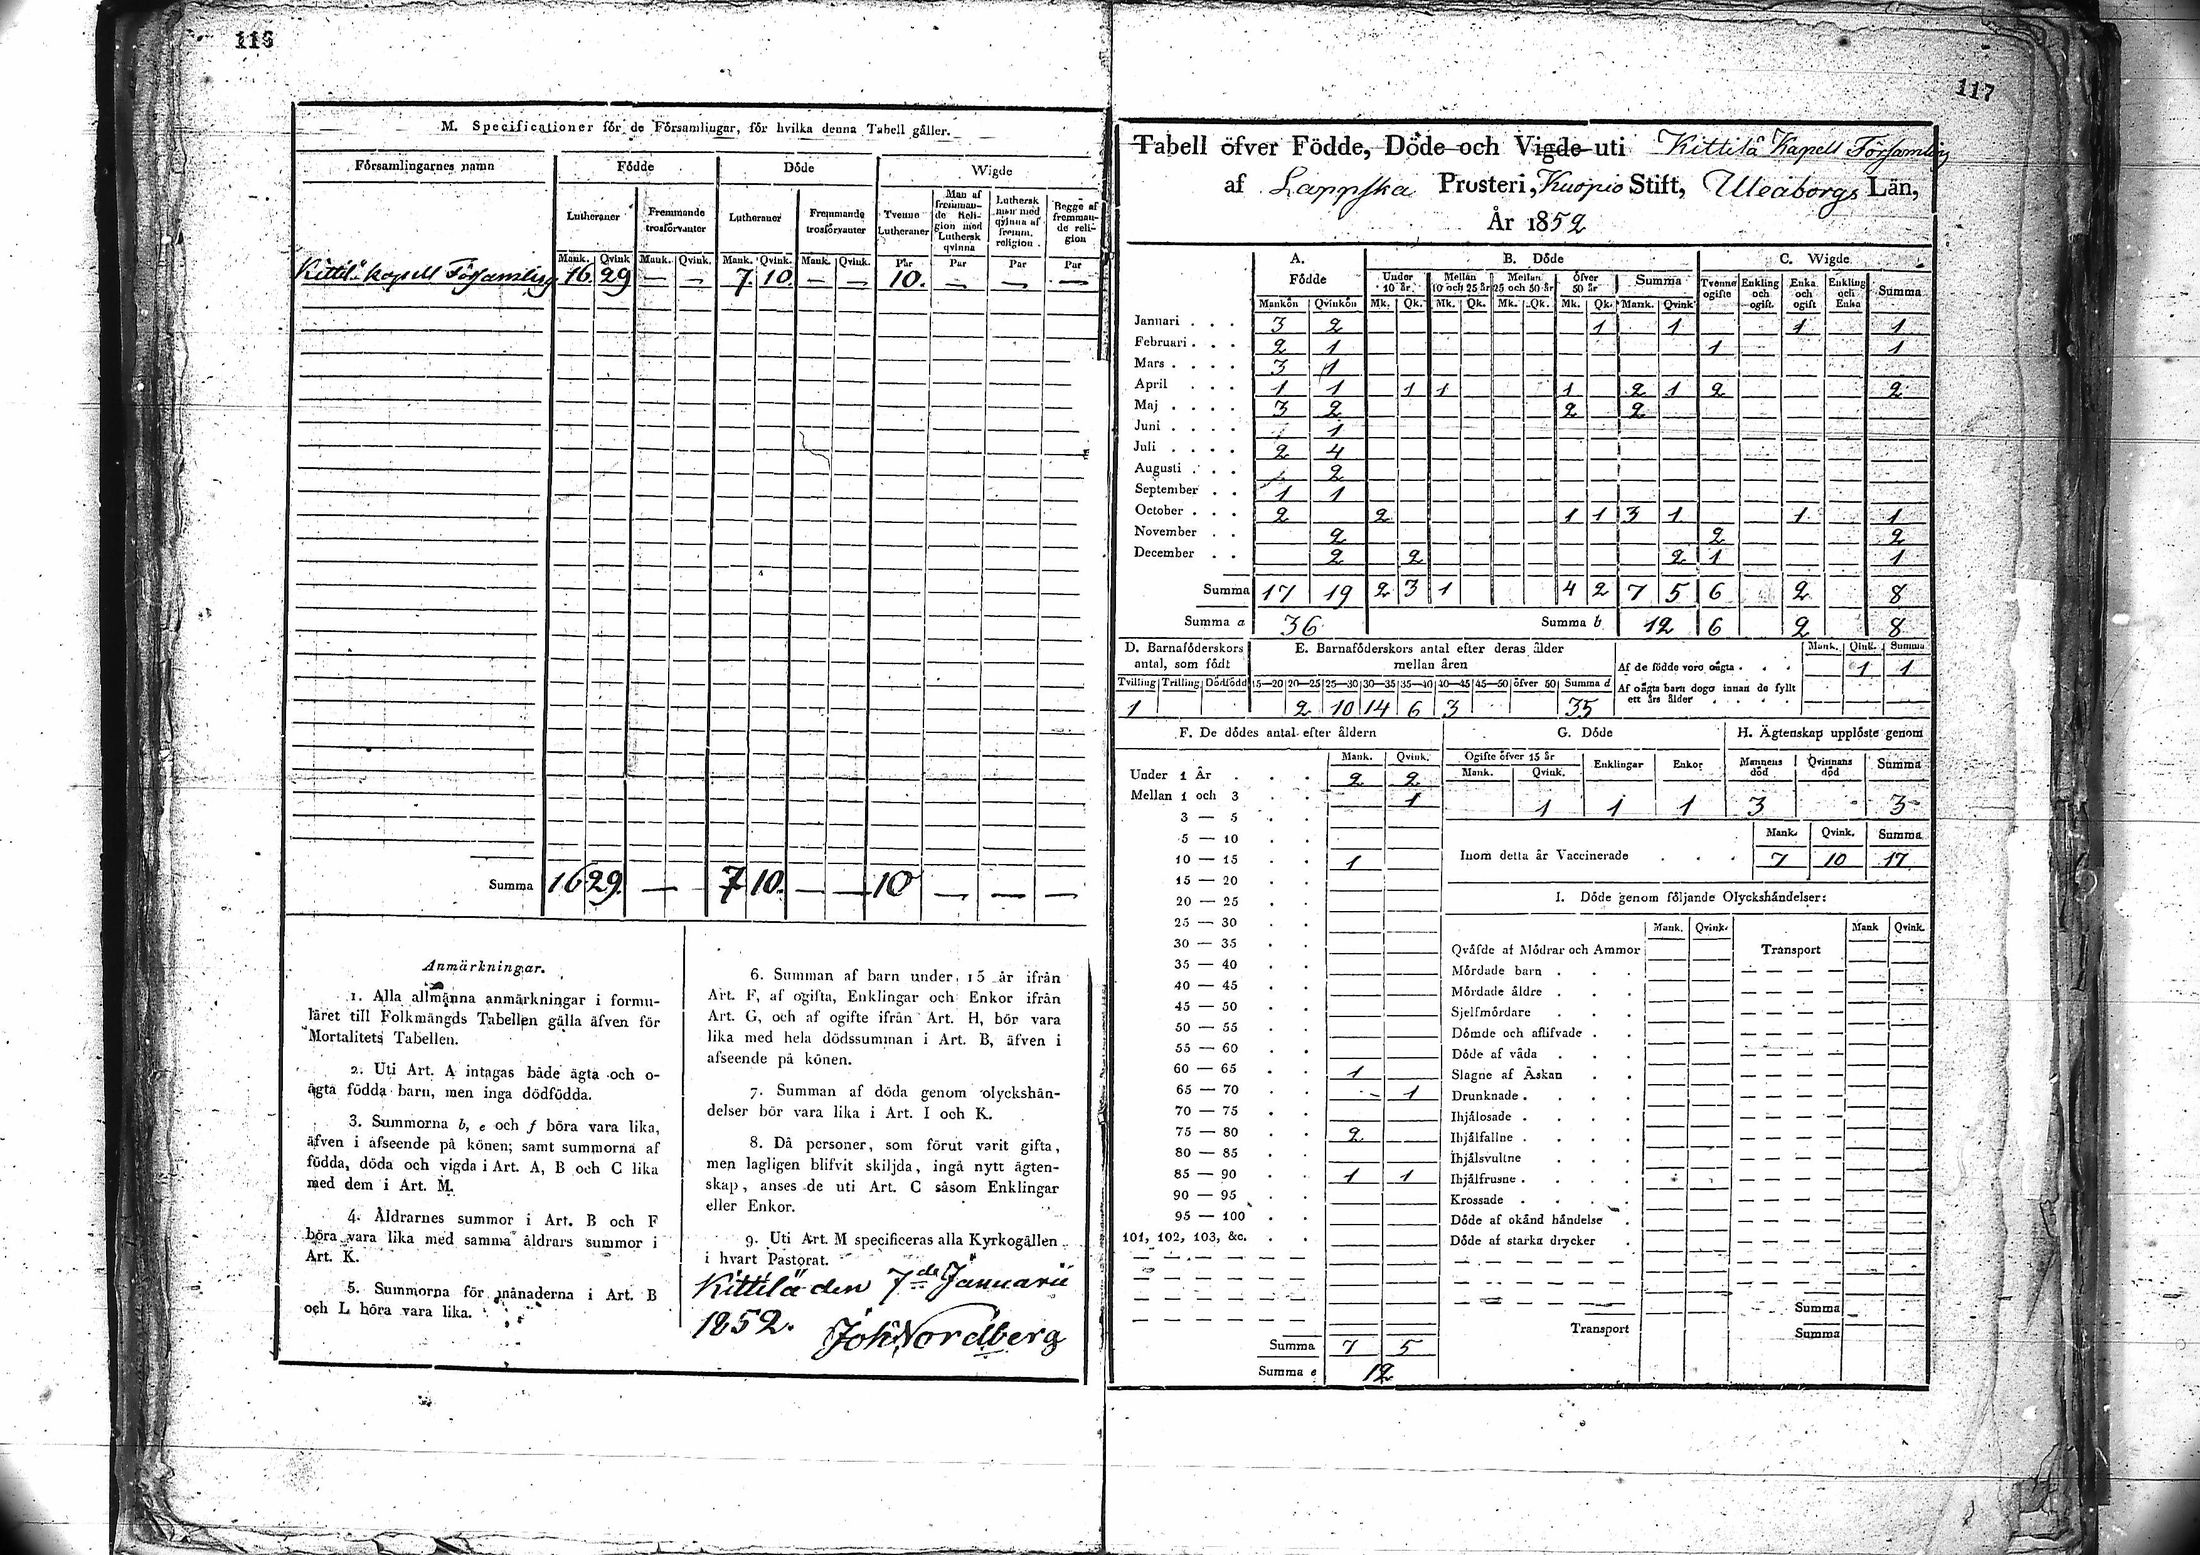 116
M. Specificationer för de Församlingar, för hvilka denna Tabell gäller.
Församlingarnes namn Födde Döde Wigde
Lutheraner Fremmande trosförvanter Lutheraner Fremmande trosförvanter Tvenne Lutheraner Man af fremmande Religion med Luthersk qvinna Luthersk man med qvinna af fremm. religion. Begge af fremmande religion
Mank. Qvink Mank. Qvink. Mank. Qvink. Mank. Qvink. Par Par Par Par
Kittilä kapell Församling 16. 29 — — 7. 10. — — 10. — — —
Summa 16 29. — — 7 10. — — 10 — — —
Anmärkningar.
1. Alla allmänna anmärkningar i formu-
läret till Folkmängds Tabellen gälla äfven för
Mortalitets Tabellen.
2. Uti Art. A intagas både ägta och o-
ägta födda barn, men inga dödfödda.
3. Summorna b, e och f böra vara lika,
äfven i afseende på könen; samt summorna af
födda, döda och vigda i Art. A, B och C lika
med dem i Art. M.
4. Åldrarnes summor i Art. B och F
böra vara lika med samma åldrars summor i
Art. K.
5. Summorna för månaderna i Art. B
och L böra vara lika.
6. Summan af barn under 15 år ifrån
Art. F, af ogifta, Enklingar och Enkor ifrån
Art. G, och af ogifte ifrån Art. H, bör vara
lika med hela dödssumman i Art. B, äfven i
afseende på könen.
7. Summan af döda genom olyckshän-
delser bör vara lika i Art. I och K.
8. Då personer, som förut varit gifta,
men lagligen blifvit skiljda, ingå nytt ägten-
skap, anses de uti Art. C såsom Enklingar
eller Enkor.
9. Uti Art. M specificeras alla Kyrkogällen
i hvart Pastorat.
Kittilä den 7de Januarii
1852.
Joh. Nordberg
117
Tabell öfver Födde, Döde och Vigde uti Kittilä Kapell Församling
af Lappska Prosteri, Kuopio Stift, Uleåborgs Län,
År 1852
A. B. Döde C. Wigde
Födde Under 10 år. Mellan 10 och 25 år Mellan 25 och 50 år Öfver 50 år Summa Tvenne ogifte Enkling och ogift. Enka och ogift Enkling och Enka Summa
Mankön Qvinkön Mk. Qk. Mk. Qk. Mk. Qk. Mk. Qk. Mank. Qvink
Januari . . . 3 2 1 1 1 1
Februari . . . 2 1 1 1
Mars . . . . 3 1
April . . . 1 1 1 1 1 2 1 2 2
Maj . . . . 3 2 2 2
Juni . . . . 1
Juli . . . . 2 4
Augusti . . . 2
September . . 1 1
October . . . 2 2 1 1 3 1 1 1
November . . 2 2 2
December . . 2 2 2 1 1
Summa 17 19 2 3 1 4 2 7 5 6 2 8
Summa a 36 Summa b 12 6 2 8
D. Barnaföderskors antal, som födt
Tvilling Trilling Dödfödd
1
E. Barnaföderskors antal efter deras ålder mellan åren
15—20 20—25 25—30 30—35 35—40 40—45 45—50 öfver 50 Summa d
2 10 14 6 3 35
Mank. Qink. Summa
Af de födde voro oägta . . . 1 1
Af oägta barn dogo innan de fyllt
ett års ålder . . . .
F. De dödes antal efter åldern
Mank. Qvink.
Under 1 År . . . 2 2
Mellan 1 och 3 . . 1
3 — 5 . .
5 — 10 . .
10 — 15 . . 1
15 — 20 . .
20 — 25 . .
25 — 30 . .
30 — 35 . .
35 — 40 . .
40 — 45 . .
45 — 50 . .
50 — 55 . .
55 — 60 . .
60 — 65 . . 1
65 — 70 . . 1
70 — 75 . .
75 — 80 . . 2
80 — 85 . .
85 — 90 . . 1 1
90 — 95 . .
95 — 100 . .
101, 102, 103, &c. . .
Summa 7 5
Summa e 12
G. Döde
Ogifte öfver 15 år Enklingar Enkor
Mank. Qvink.
1 1 1
H. Ägtenskap upplöste genom
Mannens död Qvinnans död Summa
3 3
Mank. Qvink. Summa
Inom detta år Vaccinerade . . . 7 10 17
I. Döde genom följande Olyckshändelser:
Mank. Qvink. Mank Qvink.
Qväfde af Mödrar och Ammor Transport
Mördade barn . . .
Mördade äldre . . .
Sjelfmördare . . .
Dömde och aflifvade . .
Döde af våda . . .
Slagne af Åskan . .
Drunknade . . . .
Ihjälosade . . . .
Ihjälfallne . . . .
Ihjälsvultne . . .
Ihjälfrusne . . . .
Krossade . . . .
Döde af okänd händelse .
Döde af starka drycker .
Summa
Transport Summa